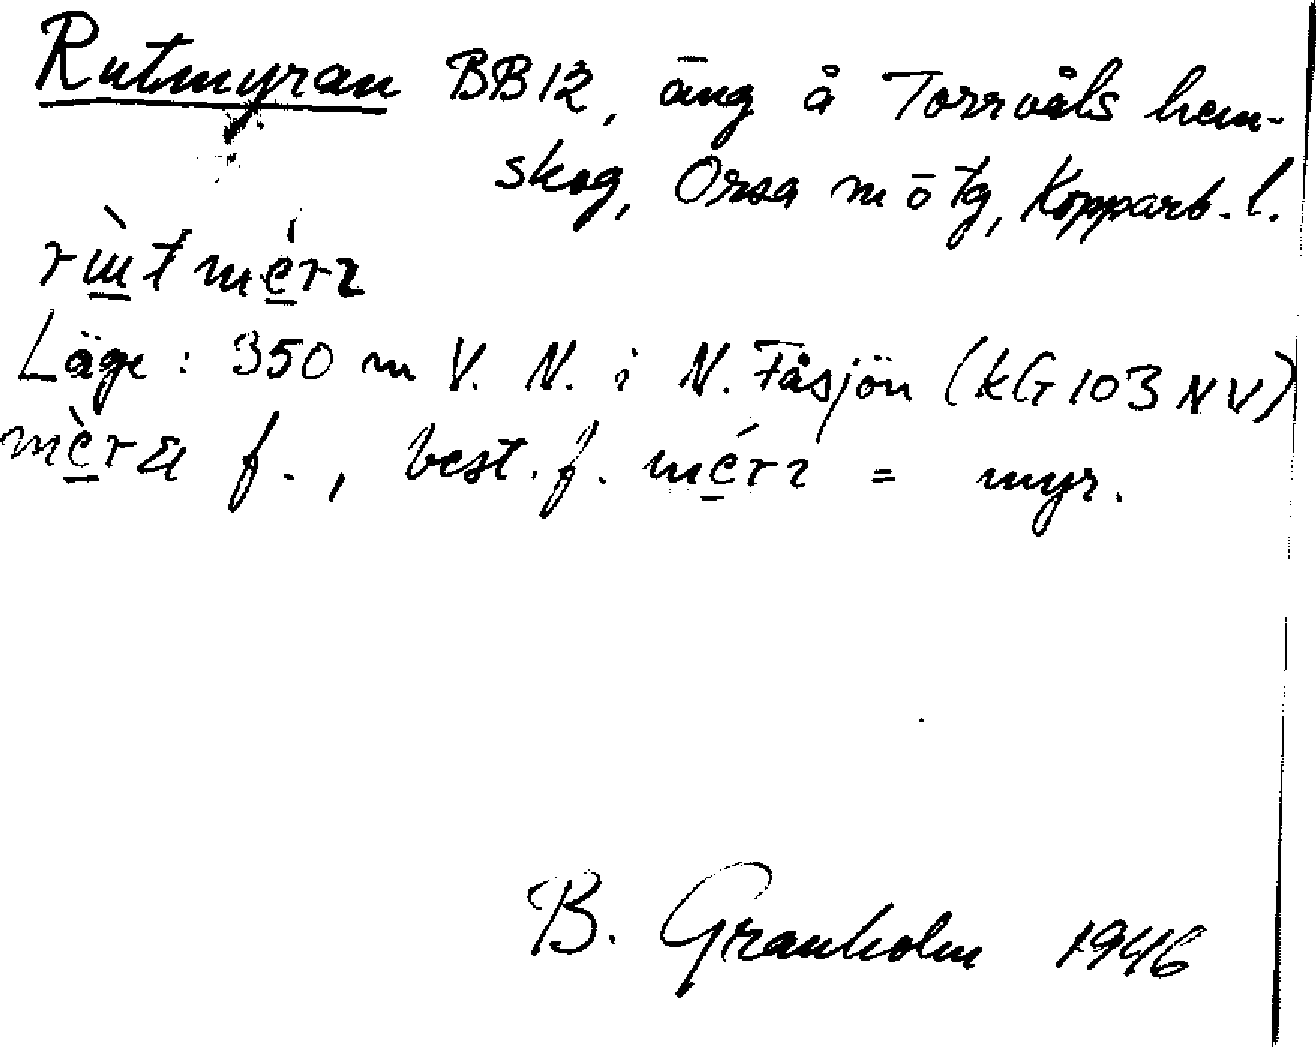 Rutmyran BB12, äng å Torrvåls hem-
skog, Orsa m ö tg, Kopparb. l.
Läge: 350 m V. N. i N. Fåsjön (kG 103 NV)
f., best. f. = myr.
B. Granholm 1946